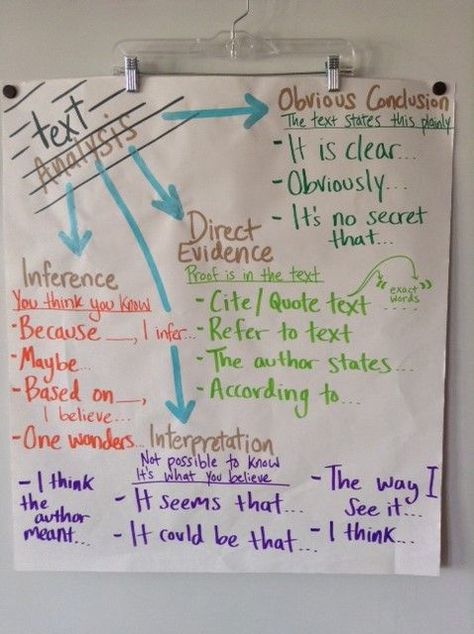 text
Analysis
Obvious Conclusion
The text states this plainly
- It is clear...
- Obviously...
- It's no secret
that...
Direct
Evidence
Proof is in the text
- Cite/Quote text
"exact
words"
- Refer to text
- The author states...
- According to...
Inference
You think you know
- Because ___, I infer...
- Maybe...
- Based on ___,
I believe...
- One wonders...
Interpretation
Not possible to know
It's what you believe
- I think
the
author
meant...
- It seems that...
- It could be that...
- The way I
see it...
- I think...